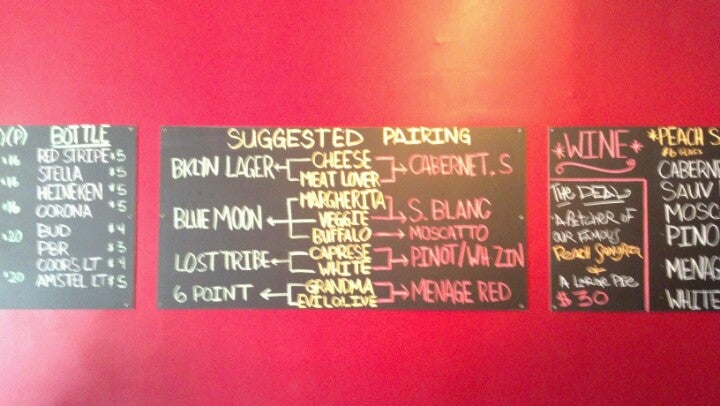 )(P) BOTTLE
$16 RED STRIPE $5
$16 STELLA $5
$16 HEINEKEN $5
$16 CORONA $5
$20 BUD $4
PBR $3
COORS LT $4
$20 AMSTEL LT $5
SUGGESTED PAIRING
BKLYN LAGER CHEESE CABERNET. S
MEAT LOVER
MARGHERITA
BLUE MOON VEGGIE S. BLANC
BUFFALO MOSCATTO
LOST TRIBE CAPRESE PINOT/WH ZIN
WHITE
6 POINT GRANDMA MENAGE RED
EVIL OLIVE
WINE
THE DEAL
A PITCHER OF
OUR FAMOUS
PEACH SANGRIA
+
A LARGE PIE
$30
*PEACH S
$6 GLASS
CABERNE
SAUV
MOSC
PINO
MENAG
WHITE